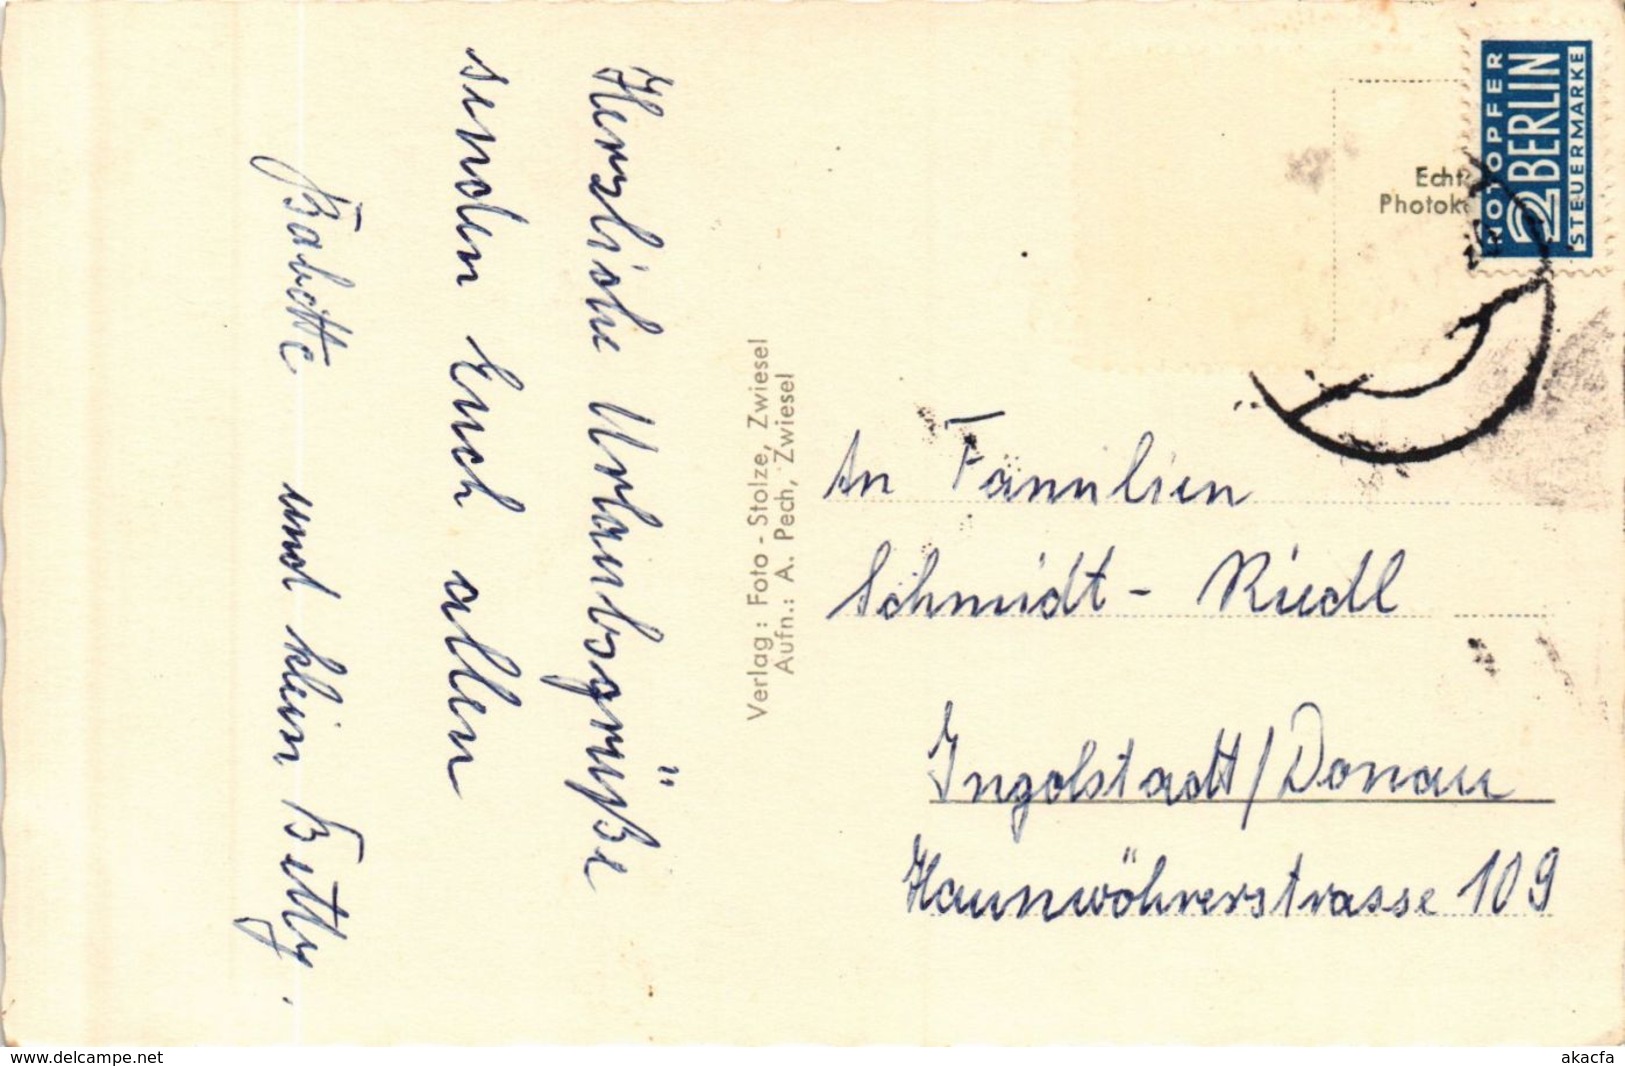 Herzliche Urlaubsgrüße
senden Euch allen
Babette und klein Betty.
Verlag: Foto-Stolze, Zwiesel
Aufn.: A. Pech, Zwiesel
Echt
Photok
NOTOPFER
2 BERLIN
STEUERMARKE
An Familien
Schmidt - Riedl
Ingolstadt/Donau
Haunwöhrerstrasse 109
www.delcampe.net
akacfa